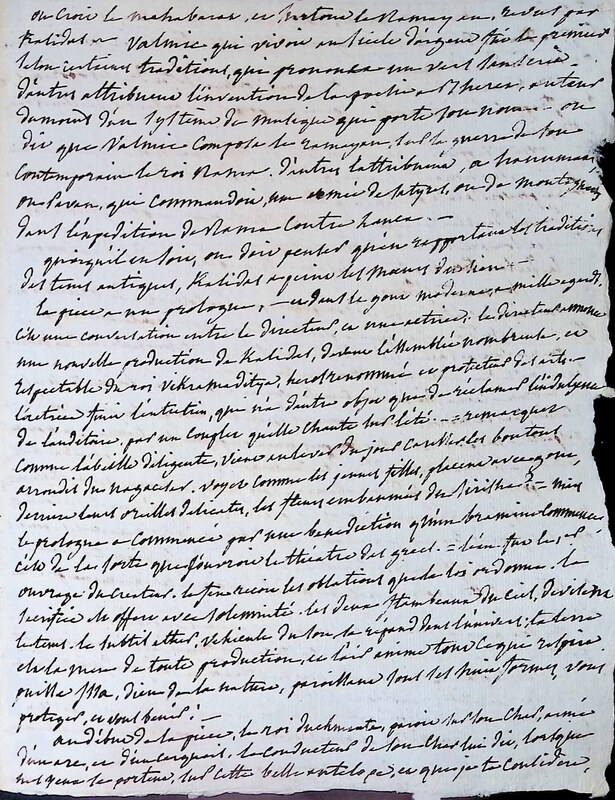 on croit le mahabarat, et surtout le Ramayan, revus par
Kalidas. Valmic qui vivoit au siecle d'argent fut le premier
selon certaines traditions, que prononca un vers sanscrit
d'autres attribuent l'invention de la poesie a Bheret, auteur
dumoins d'un systeme de musique qui porte son nom. - on
dit que Valmic composa le ramayan, sur la guerre de son
contemporain le roi Rama. d'autres l'attribuent, a hanuman,
ou Pavan, qui commandoit, une armée de satyres, ou de montagnards
dans l'expedition de Rama contre Lanca. -
quoiqu'il en soit, on doit penser qu'en rapportant les traditions
des tems antiques, Kalidas a peint les moeurs du sien
La piece a un prologue, - et dans le gout moderne, a mille egards.
c'est une conversation entre le directeur, et une actrice; le directeur annonce
une nouvelle production de Kalidas, devant l'assemblée nombreuse, et
respectable du roi Vikramaditya, heros renommé et protecteur des arts. -
l'actrice finit l'entretien, qui n'a d'autre objet que de reclamer l'indulgence
de l'auditoire. par un couplet qu'elle chante sur l'été. - remarquez
comme l'abeille diligente, vient enlever du jour les boutons
arrondis du nagacesar. voyez comme les jeunes filles, placent avec gout,
derriere leurs oreilles delicates, les fleurs embaumées du sirisha - mais
le prologue a commencé par une benediction qu'un bramine commence
c'est de la sorte que s'ouvroit le theatre des grecs. = l'eau fut le 1er
ouvrage du createur. le feu recoit les oblations que la loi ordonne. le
sacrifice est offert avec solemnité. les deux flambeaux du ciel, divisent
le tems. le subtil ether, vehicule du son, se repand dans l'univers; la terre
est la mere de toute production, et l'air anime tout ce qui respire
puisse Issa, dieu de la nature, paroissant sous ses huit formes, vous
proteger, et vous benir! -
au debut de la piece, le roi Dushmanta, paroit sur son char, armé
d'un arc, et d'un carquois. le conducteur de son char lui dit, lorsque
mes yeux se portent, sur cette belle antelope, et que je te considere,